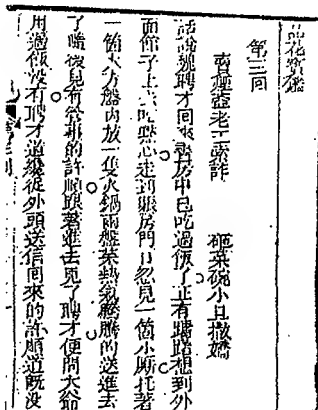 品花寶鑑
第三回
賣煙壺老王索詐 砸菜碗小旦撒嬌
話說魏聘才回來書房中已吃過飯了正有躊躇想到外
面館子上去吃點心走到賬房門口忽見一箇小廝托著
一箇大方盤內放一隻火鍋兩盤菜熱氣騰騰的送進去
了隨後見有管事的許順跟著進去見了聘才便問大爺
用過飯沒有聘才道纔從外頭送信回來的許順道既沒